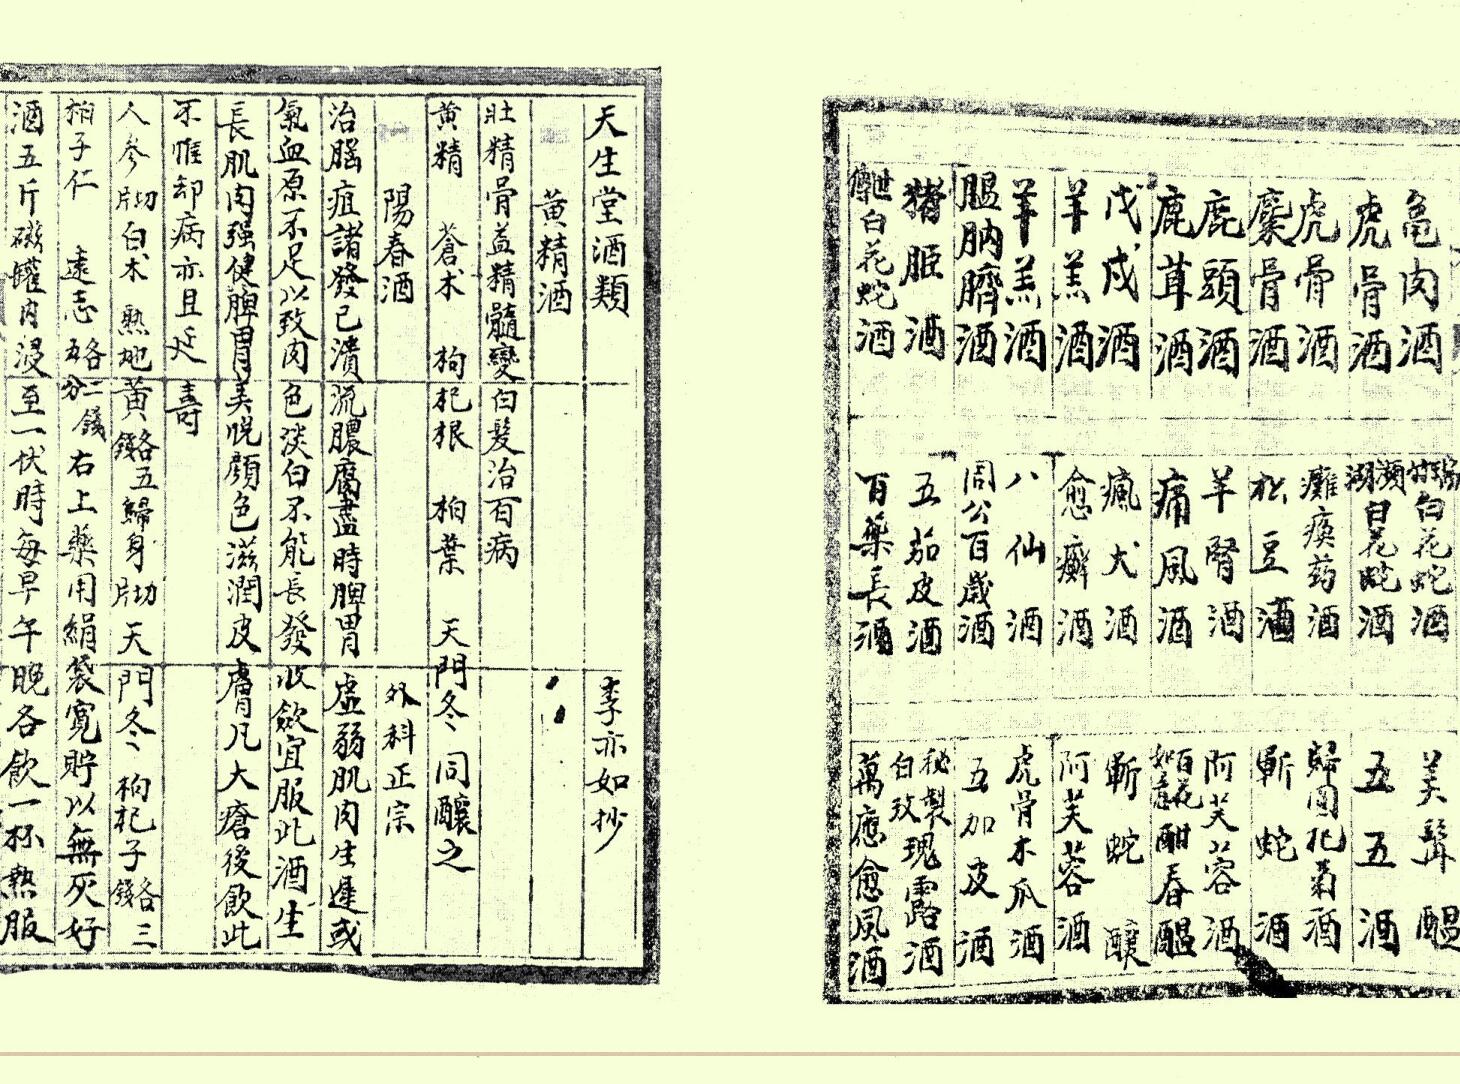 龟肉酒
虎骨酒
虎骨酒
麋骨酒
鹿頭酒
鹿茸酒
戊戍酒
羊羔酒
羊羔酒
膃肭臍酒
猪脏酒
世傳白花蛇酒
白花蛇酒
瀕湖白花蛇酒
灘瘓药酒
松豆酒
羊腎酒
痛風酒
瘋犬酒
愈癬酒
八仙酒
周公百歲酒
五茄皮酒
百藥長酒
美髯醖
五五酒
歸圓杞菊酒
蘄蛇酒
阿芙蓉酒
百花如意酣春醖
蘄蛇釀
阿芙蓉酒
虎骨木瓜酒
五加皮酒
秘製白玫瑰露酒
萬應愈风酒
天生堂酒類 李亦如抄
黄精酒
壯精骨益精髓變白髮治百病
黄精 蒼术 枸杞根 柏葉 天門冬 同釀之
陽春酒 外科正宗
治腦疽諸發已潰流膿腐盡時脾胃虛弱肌肉生遲或
氣血原不足以致肉色淡白不能長發收斂宜服此酒生
長肌肉强健脾胃美悅顔色滋潤皮膚凡大瘡後飲此
不惟却病亦且延壽
人參切片 白术 熟地黄各五錢 歸身切片 天門冬 枸杞子各三錢
柏子仁 遠志各二錢五分 右上藥用絹袋寬貯以無灰好
酒五斤磁罐内浸至一伏時每早午晚各飲一杯熱服